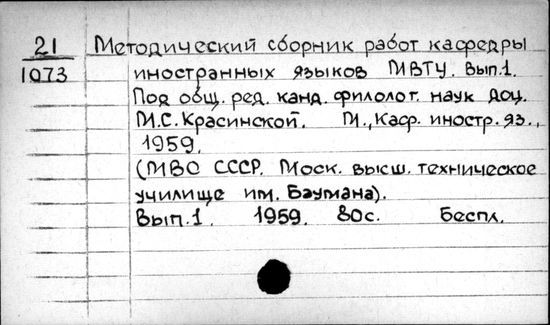 21 Методический сборник работ кафедры
1073 иностранных языков МВТУ. Вып.1.
Под общ. ред. канд. филолог. наук доц.
М.С. Красинской. М., Каф. иностр. яз.,
1959.
(МВО СССР. Моск. высш. техническое
училище им. Баумана).
Вып.1. 1959. 80с. Беспл.